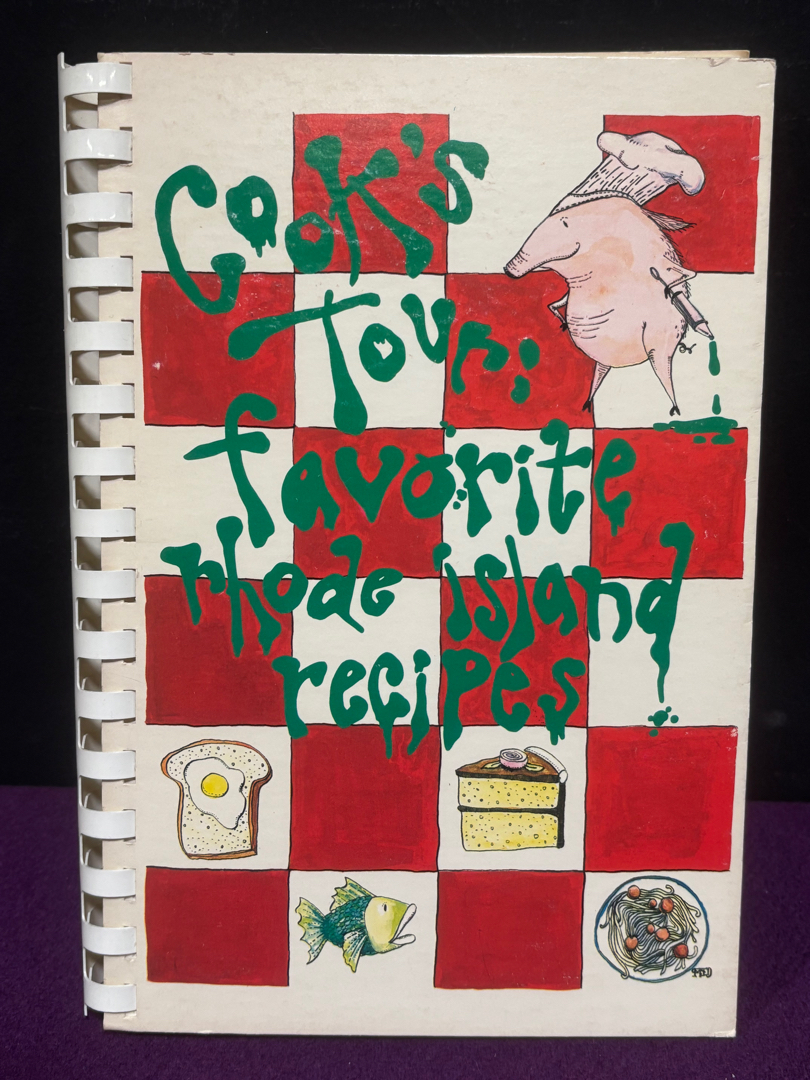 Cook's
Tour:
favorite
rhode island
recipes